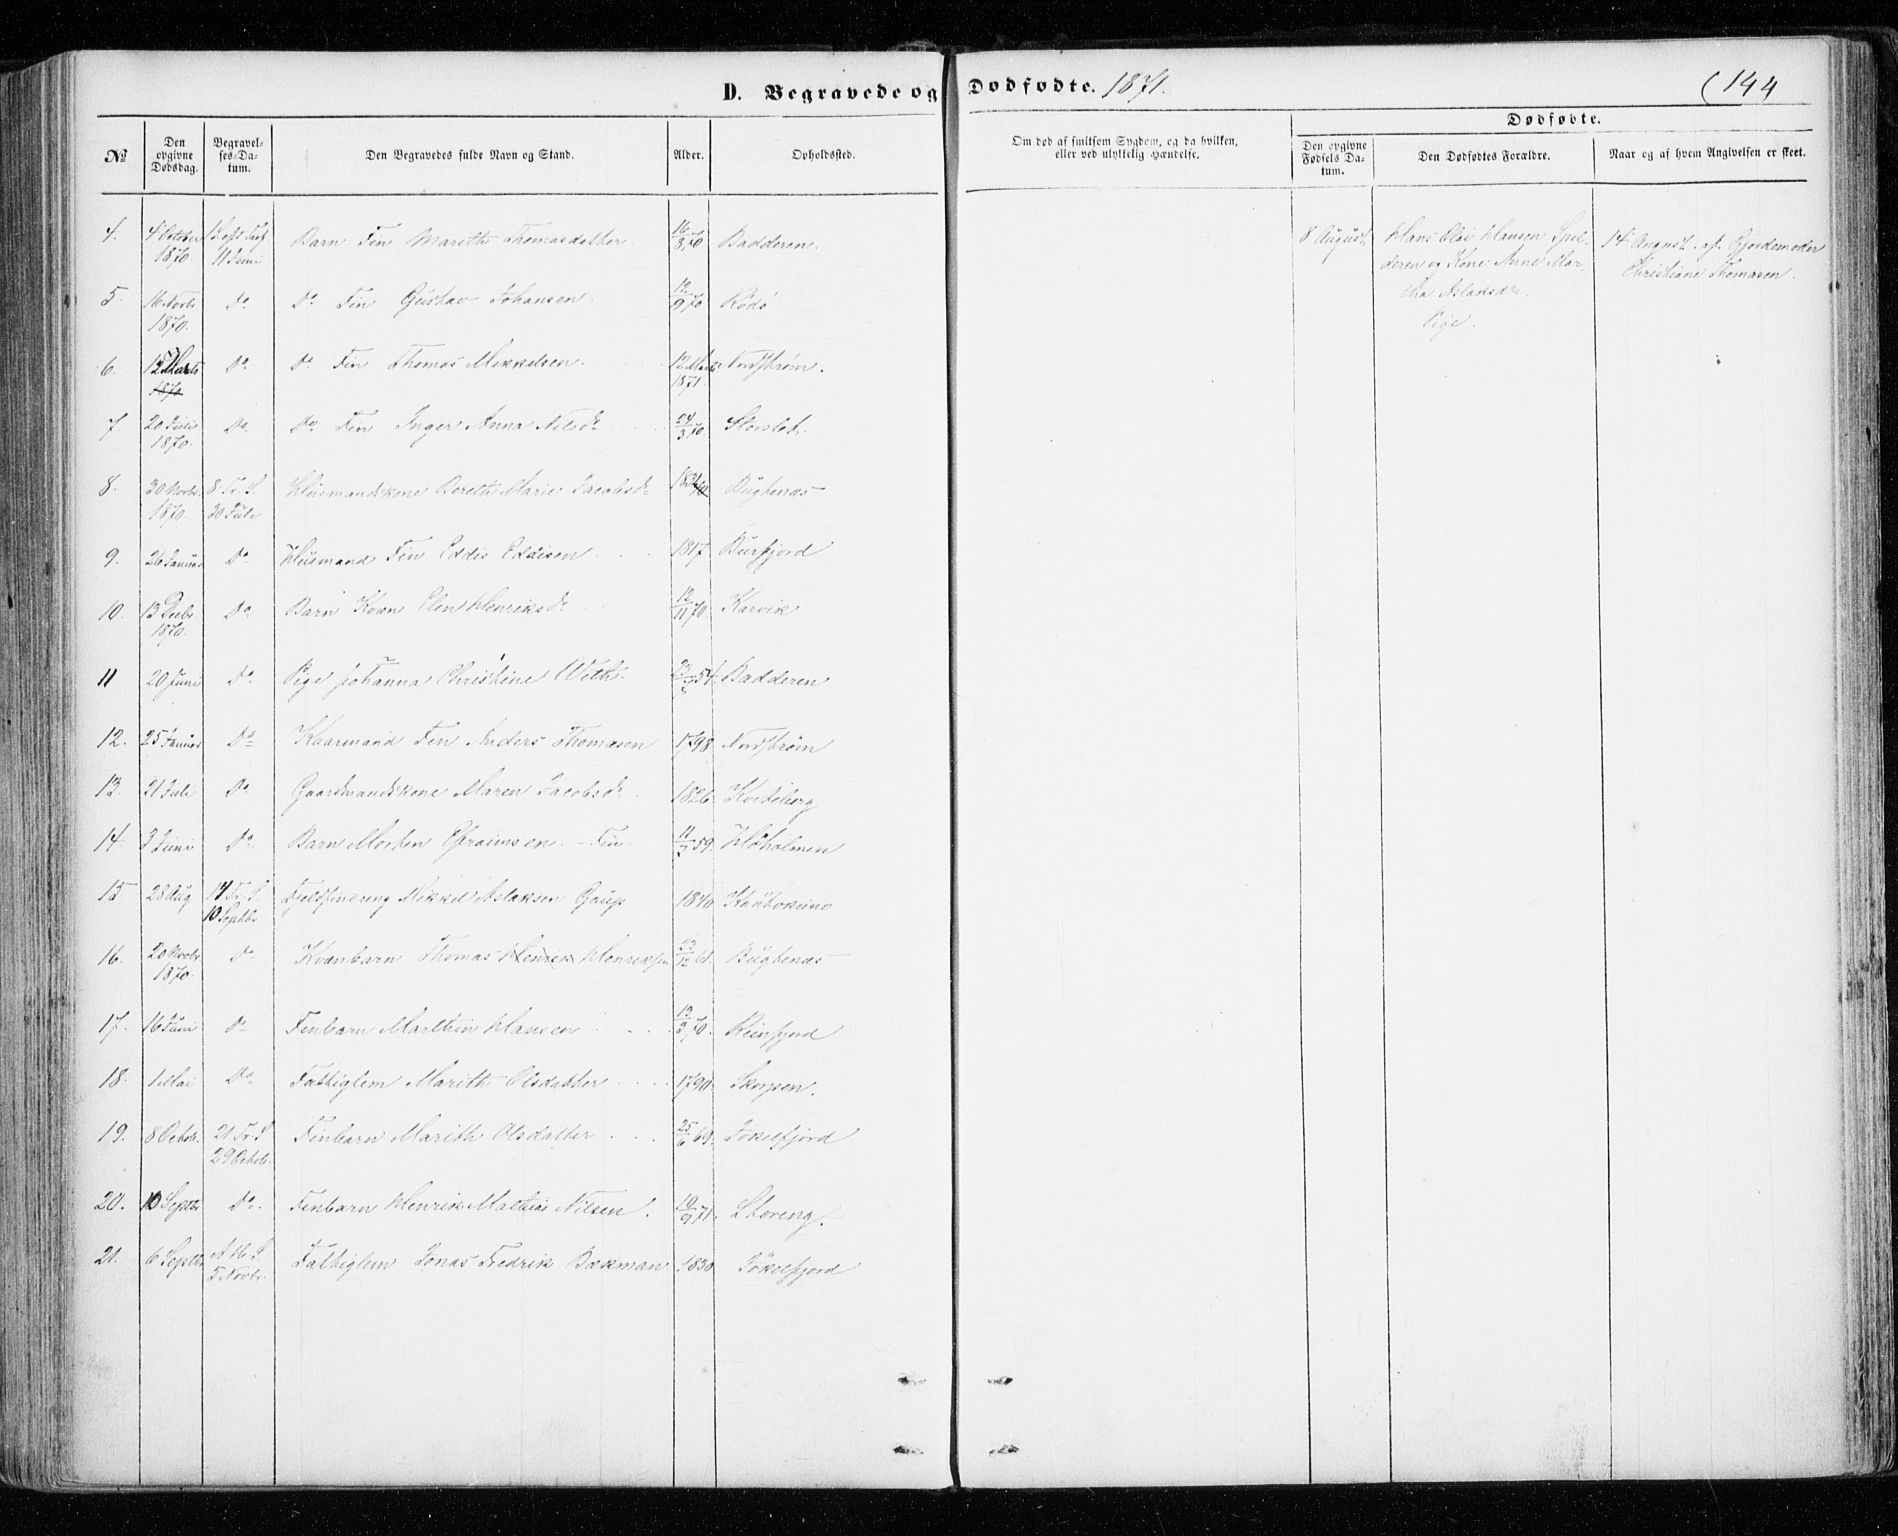 D. Begravede og Dødfødte. 1871. (144
№ Den opgivne Dødsdag. Begravelses-Datum. Den Begravedes fulde Navn og Stand. Alder. Opholdssted. Om død af smitsom Sygdom, og da hvilken, eller ved ulykkelig Hændelse. Dødfødte. Den opgivne Fødsels Datum. Den Dødfødtes Forældre. Naar og af hvem Angivelsen er skeet.
4. 4 October 1870 11 Juni Barn Fin Marith Thomasdatter 16/8 70 Badderen. 8 August Hans Olai Hansen Spilderen og Kone Anne Martha Aslaksdr. Pige. 14 August af Gjordemoder Christiane Thomasen.
5. 16 Novbr 1870. Do Do Fin Gustav Johansen. 12/9 70 Rødø
6. 12 Marts 1870 Do Do Fin Thomas Mikkelsen. 12 Marts 1871. Nordstrøm.
7. 20 Juli 1870. Do Do Fin Inger Anna Nilsdr 24/3 70 Storslet.
8. 30 Novbr. 1870. 8 Tr. S. 30 Juli Husmandskone Bereth Marie Jacobsdr Bugtenæs
9. 26 Januar Do Husmand Fin Eddis Eddisen 1817 Burfjord
10. 13 Decbr. 1870. Do Barn Kvæn Elen Henriksdr 12/11 70. Karvik
11 20 Juni Do Pige Johanna Christine With. 54. Badderen
12. 25 Januar Do Kaarmand Fin Anders Thomasen 1798 Nordstrøm
13. 21 Juli Do Gaardmandskone Maren Jacobsdr 1826. Kvitberg
14 3 Juni Do Barn Morten Efraimsen. - Fin - 59. Høholmen
15 28 Aug 14 Tr. S. 10 Septbr Fjeldfindreng Mikkel Aslaksen Gaup 1840 Kautokeino
16. 20 Novbr 1870. Do Kvænbarn Thomas Henrik Henriksen 23/12 61. Bugtenæs
17. 16 Juni Do Finbarn Marthin Hansen 13/3 70. Reinfjord
18. 1 Mai Do Fattiglem Marith Olsdatter 1790. Skorpen.
19. 8 Octob. 21 Tr. S. 29 Octob. Finbarn Marith Olsdatter 25/6 69. Jokelfjord
20. 10 Septbr Do. Finbarn Henrik Mathias Nilsen. 10/9 71. Storeng.
21. 6 Septbr A H S 5 Novbr. Fattiglem Jonas Fredrik Bækman 1830 Jökelfjord